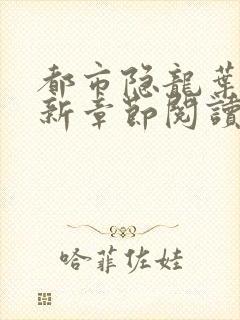 都市隐龍葉
新章節閱讀
哈菲佐娃